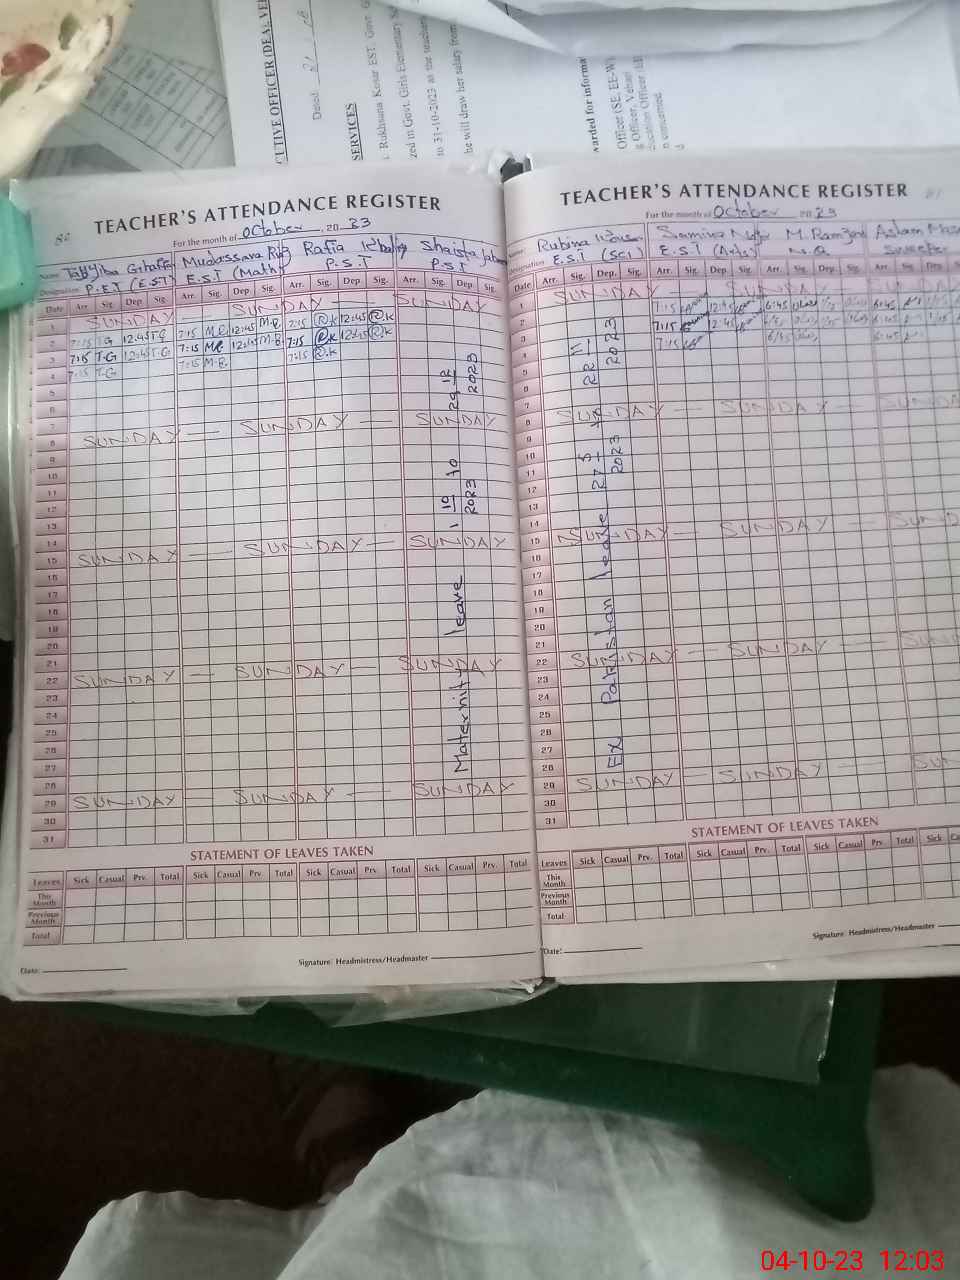 CUTIVE OFFICER (DEA), VE
Dated
SERVICES
Rukhsana Kosar EST, Govt. G
zed in Govt. Girls Elementary
to 31-10-2023 as the teachers
he will draw her salary from
warded for informa
Officer (SE, EE-W)
Officer, Vehari
ducation Officer
concerned
TEACHER'S ATTENDANCE REGISTER
For the month of October, 20
Name Rafia Iqbal Shaista
Designation P.E.T (E.S.T) E.S.T (Math) P.S.T P.S.T
Date Arr. Sig. Dep. Sig. Arr. Sig. Dep. Sig. Arr. Sig. Dep. Sig. Arr. Sig. Dep. Sig.
1 SUNDAY — SUNDAY — SUNDAY
2 7:15 T.G 12:45 T.G 7:15 M.R 12:45 M.R 7:15 R.K 12:45 R.K
3 7:15 T.G 12:45 T.G 7:15 M.R 12:45 M.R 7:15 R.K 12:45 R.K
4 7:15 T.G 7:15 M.R. 7:15 R.K
5
6
7
8 SUNDAY — SUNDAY — SUNDAY
9
10
11
12
13
14
15 SUNDAY — SUNDAY — SUNDAY
16
17
18
19
20
21
22 SUNDAY — SUNDAY — SUNDAY
23
24
25
26
27
28
29 SUNDAY — SUNDAY — SUNDAY
30
31
Maternity leave 1 10 2023 to 29 12 2023
STATEMENT OF LEAVES TAKEN
Leaves Sick Casual Prv. Total Sick Casual Prv. Total Sick Casual Prv. Total Sick Casual Prv. Total
This Month
Previous Month
Total
Date:
Signature: Headmistress/Headmaster
TEACHER'S ATTENDANCE REGISTER 81
For the month of October 20
Name: Rubina Samina M. Ramzan Aslam
Designation E.S.T (Sci) E.S.T (Arts) N.Q Sweeper
Date Arr. Sig. Dep. Sig. Arr. Sig. Dep Sig. Arr. Sig. Dep. Sig. Arr. Sig. Dep. Sig.
1 SUNDAY — SUNDAY
2 7:15 12:45 6:45 6:45
3 7:15 12:45 6:45
4 7:15 6:45 6:45
5
6
7
8 SUNDAY — SUNDAY — SUNDAY
9
10
11
12
13
14
15 SUNDAY — SUNDAY — SUND
16
17
18
19
20
21
22 SUNDAY — SUNDAY — SUN
23
24
25
26
27
28
29 SUNDAY — SUNDAY — SUN
30
31
Ex Pakistan leave 27 5 2023 22 11 2023
STATEMENT OF LEAVES TAKEN
Leaves Sick Casual Prv. Total Sick Casual Prv. Total Sick Casual Prv. Total Sick Ca
This Month
Previous Month
Total
Date:
Signature: Headmistress/Headmaster
04-10-23 12:03